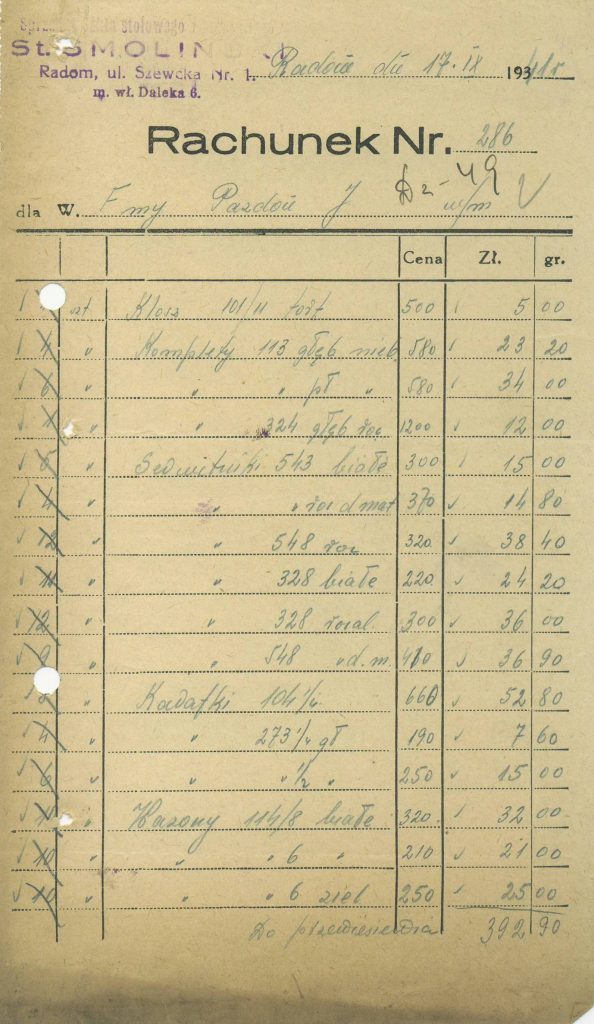 Sprzedaż szkła stołowego i
St. SMOLIŃSKI
Radom, ul. Szewcka Nr. 1. Radom dn 17.IX 1941 r
m. wł. Daleka 6.
Rachunek Nr. 286
Dz-49
dla W. Fmy Pazdon J w/m
Cena Zł. gr.
1 szt Klosz 101/II tort 500 5 00
4 " Komplety 113 głęb nieb. 580 23 20
6 " " " pł " 580 34 00
1 " " 324 głęb roz 1200 12 00
5 " Serwitniki 543 białe 300 15 00
4 " " " roz d mat 370 14 80
12 " " 548 roz 320 38 40
11 " " 328 białe 220 24 20
12 " " 328 rozal 300 36 00
9 " " 548 " d.m. 410 36 90
8 " Karafki 104 1/4 660 52 80
4 " " 273 1/4 gł 190 7 60
6 " " " 1/2 " 250 15 00
" Wazony 114/8 białe 320 32 00
10 " " " 6 " 210 21 00
10 " " " 6 ziel 250 25 00
Do przeniesienia 392 90